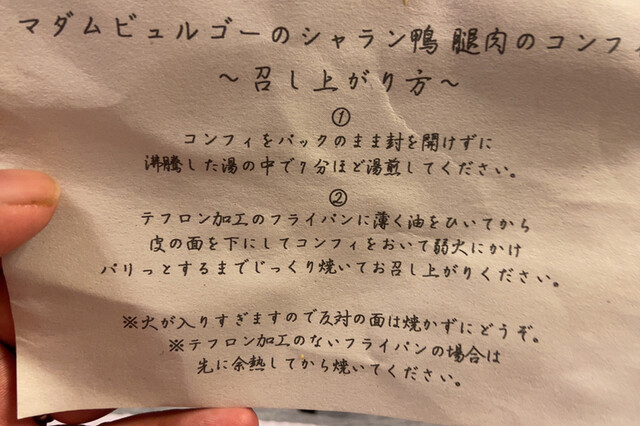 マダムビュルゴーのシャラン鴨 腿肉のコンフィ
～召し上がり方～
①
コンフィをパックのまま封を開けずに
沸騰した湯の中で7分ほど湯煎してください。
②
テフロン加工のフライパンに薄く油をひいてから
皮の面を下にしてコンフィをおいて弱火にかけ
パリっとするまでじっくり焼いてお召し上がりください。
※火が入りすぎますので反対の面は焼かずにどうぞ。
※テフロン加工のないフライパンの場合は
先に余熱してから焼いてください。